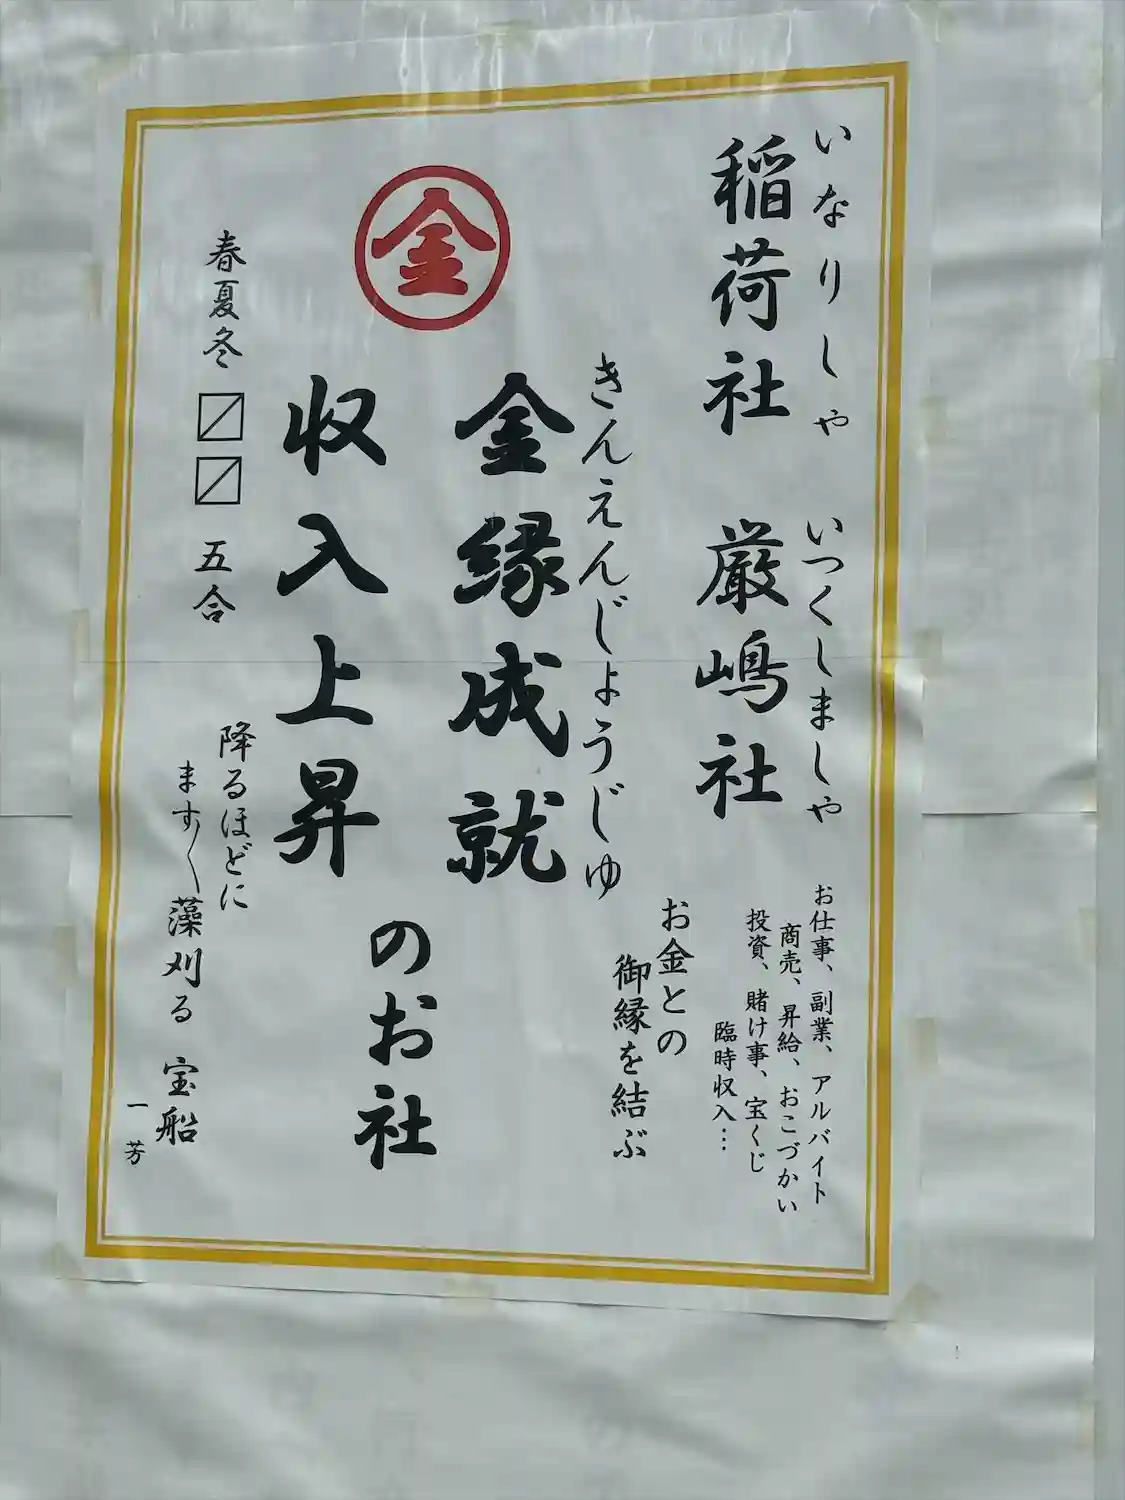 いなりしゃ　いつくしましゃ
稲荷社　厳嶋社
お仕事、副業、アルバイト
商売、昇給、おこづかい
投資、賭け事、宝くじ
臨時収入…
お金との
御縁を結ぶ
きんえんじょうじゅ
金縁成就
㊎
収入上昇
のお社
春夏冬〼〼五合
降るほどに
ます〱藻刈る 宝船
一芳